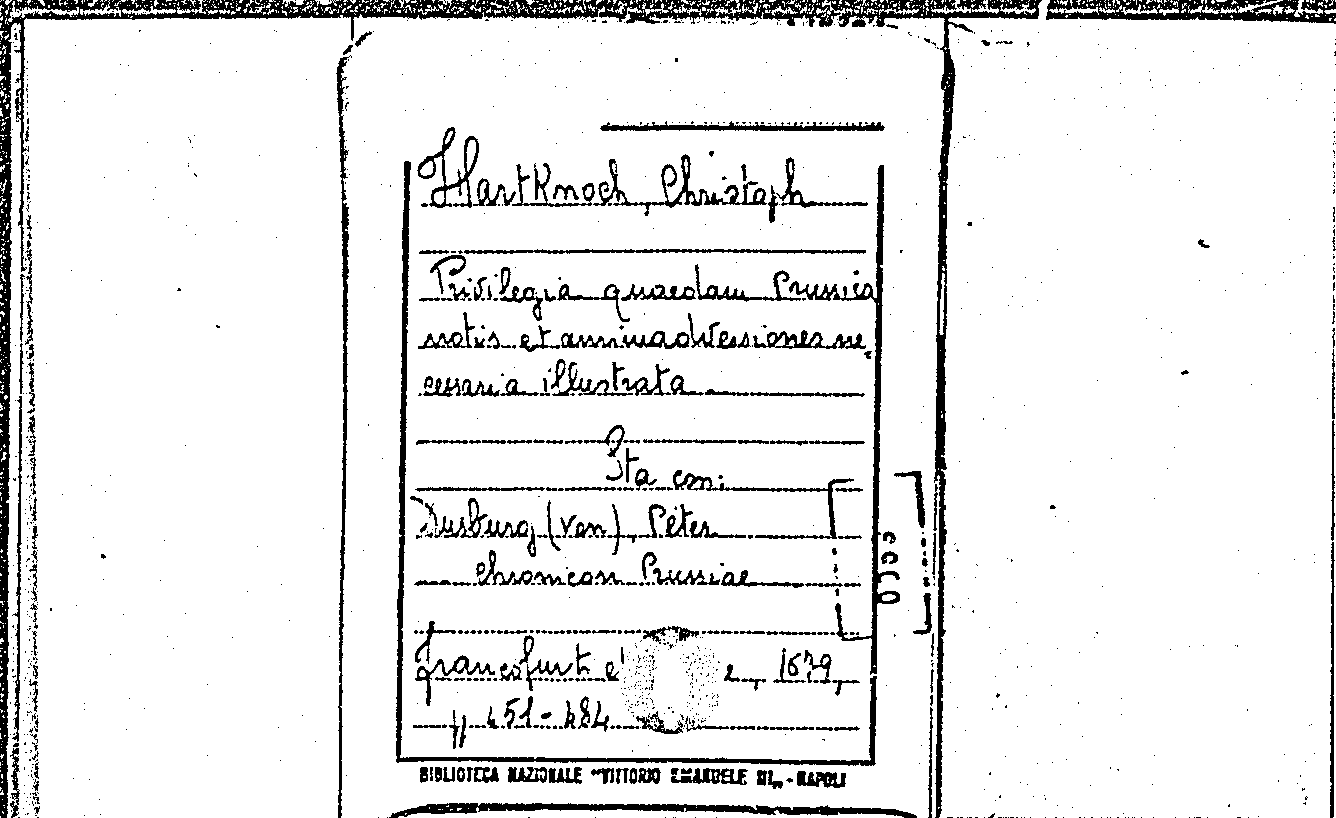 Hartknoch, Christoph
Privilegia quaedam Prussica
notis et animadversiones ne
cessaria illustrata
Sta con:
Dusburg (von), Peter
Chronicon Prussiae
Francofurt e, 1679,
451-484
BIBLIOTECA NAZIONALE "VITTORIO EMANUELE III" - NAPOLI